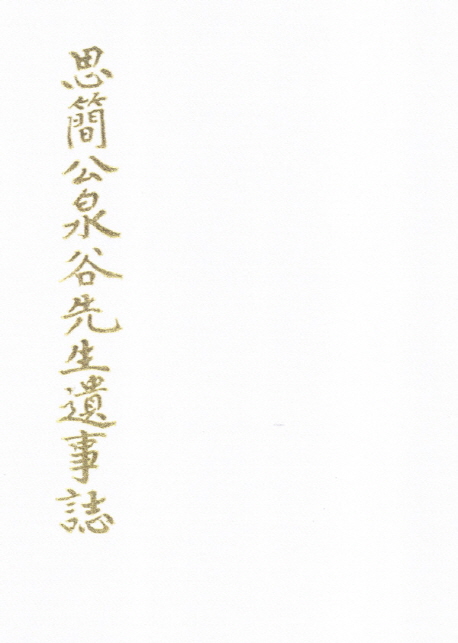 思簡公泉谷先生遺事誌